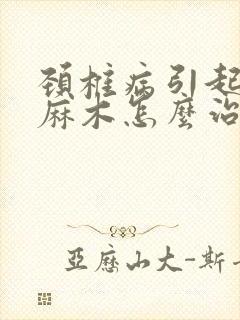 頸椎病引起
麻木怎麼治
亞歷山大-斯